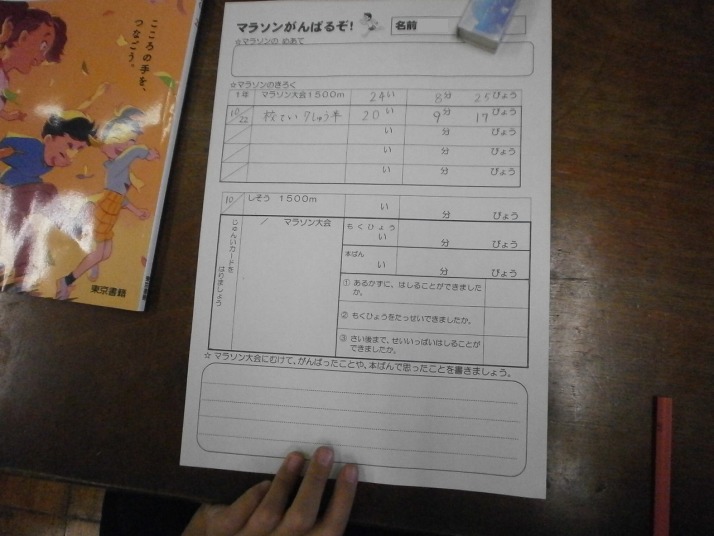 こころの手を、
つなごう。
東京書籍
マラソンがんばるぞ! 名前
☆マラソンの めあて
☆マラソンのきろく
1年 マラソン大会1500m 24い 8分 25びょう
10/22 校てい 7しゅう半 20い 9分 17びょう
い 分 びょう
い 分 びょう
い 分 びょう
10/ しそう 1500m い 分 びょう
じゅんいカードを
はりましょう
/ マラソン大会
もくひょう
い 分 びょう
本ばん
い 分 びょう
① あるかずに、はしることができました
か。
② もくひょうをたっせいできましたか。
③ さい後まで、せいいっぱいはしることが
できましたか。
☆ マラソン大会にむけて、がんばったことや、本ばんで思ったことを書きましょう。